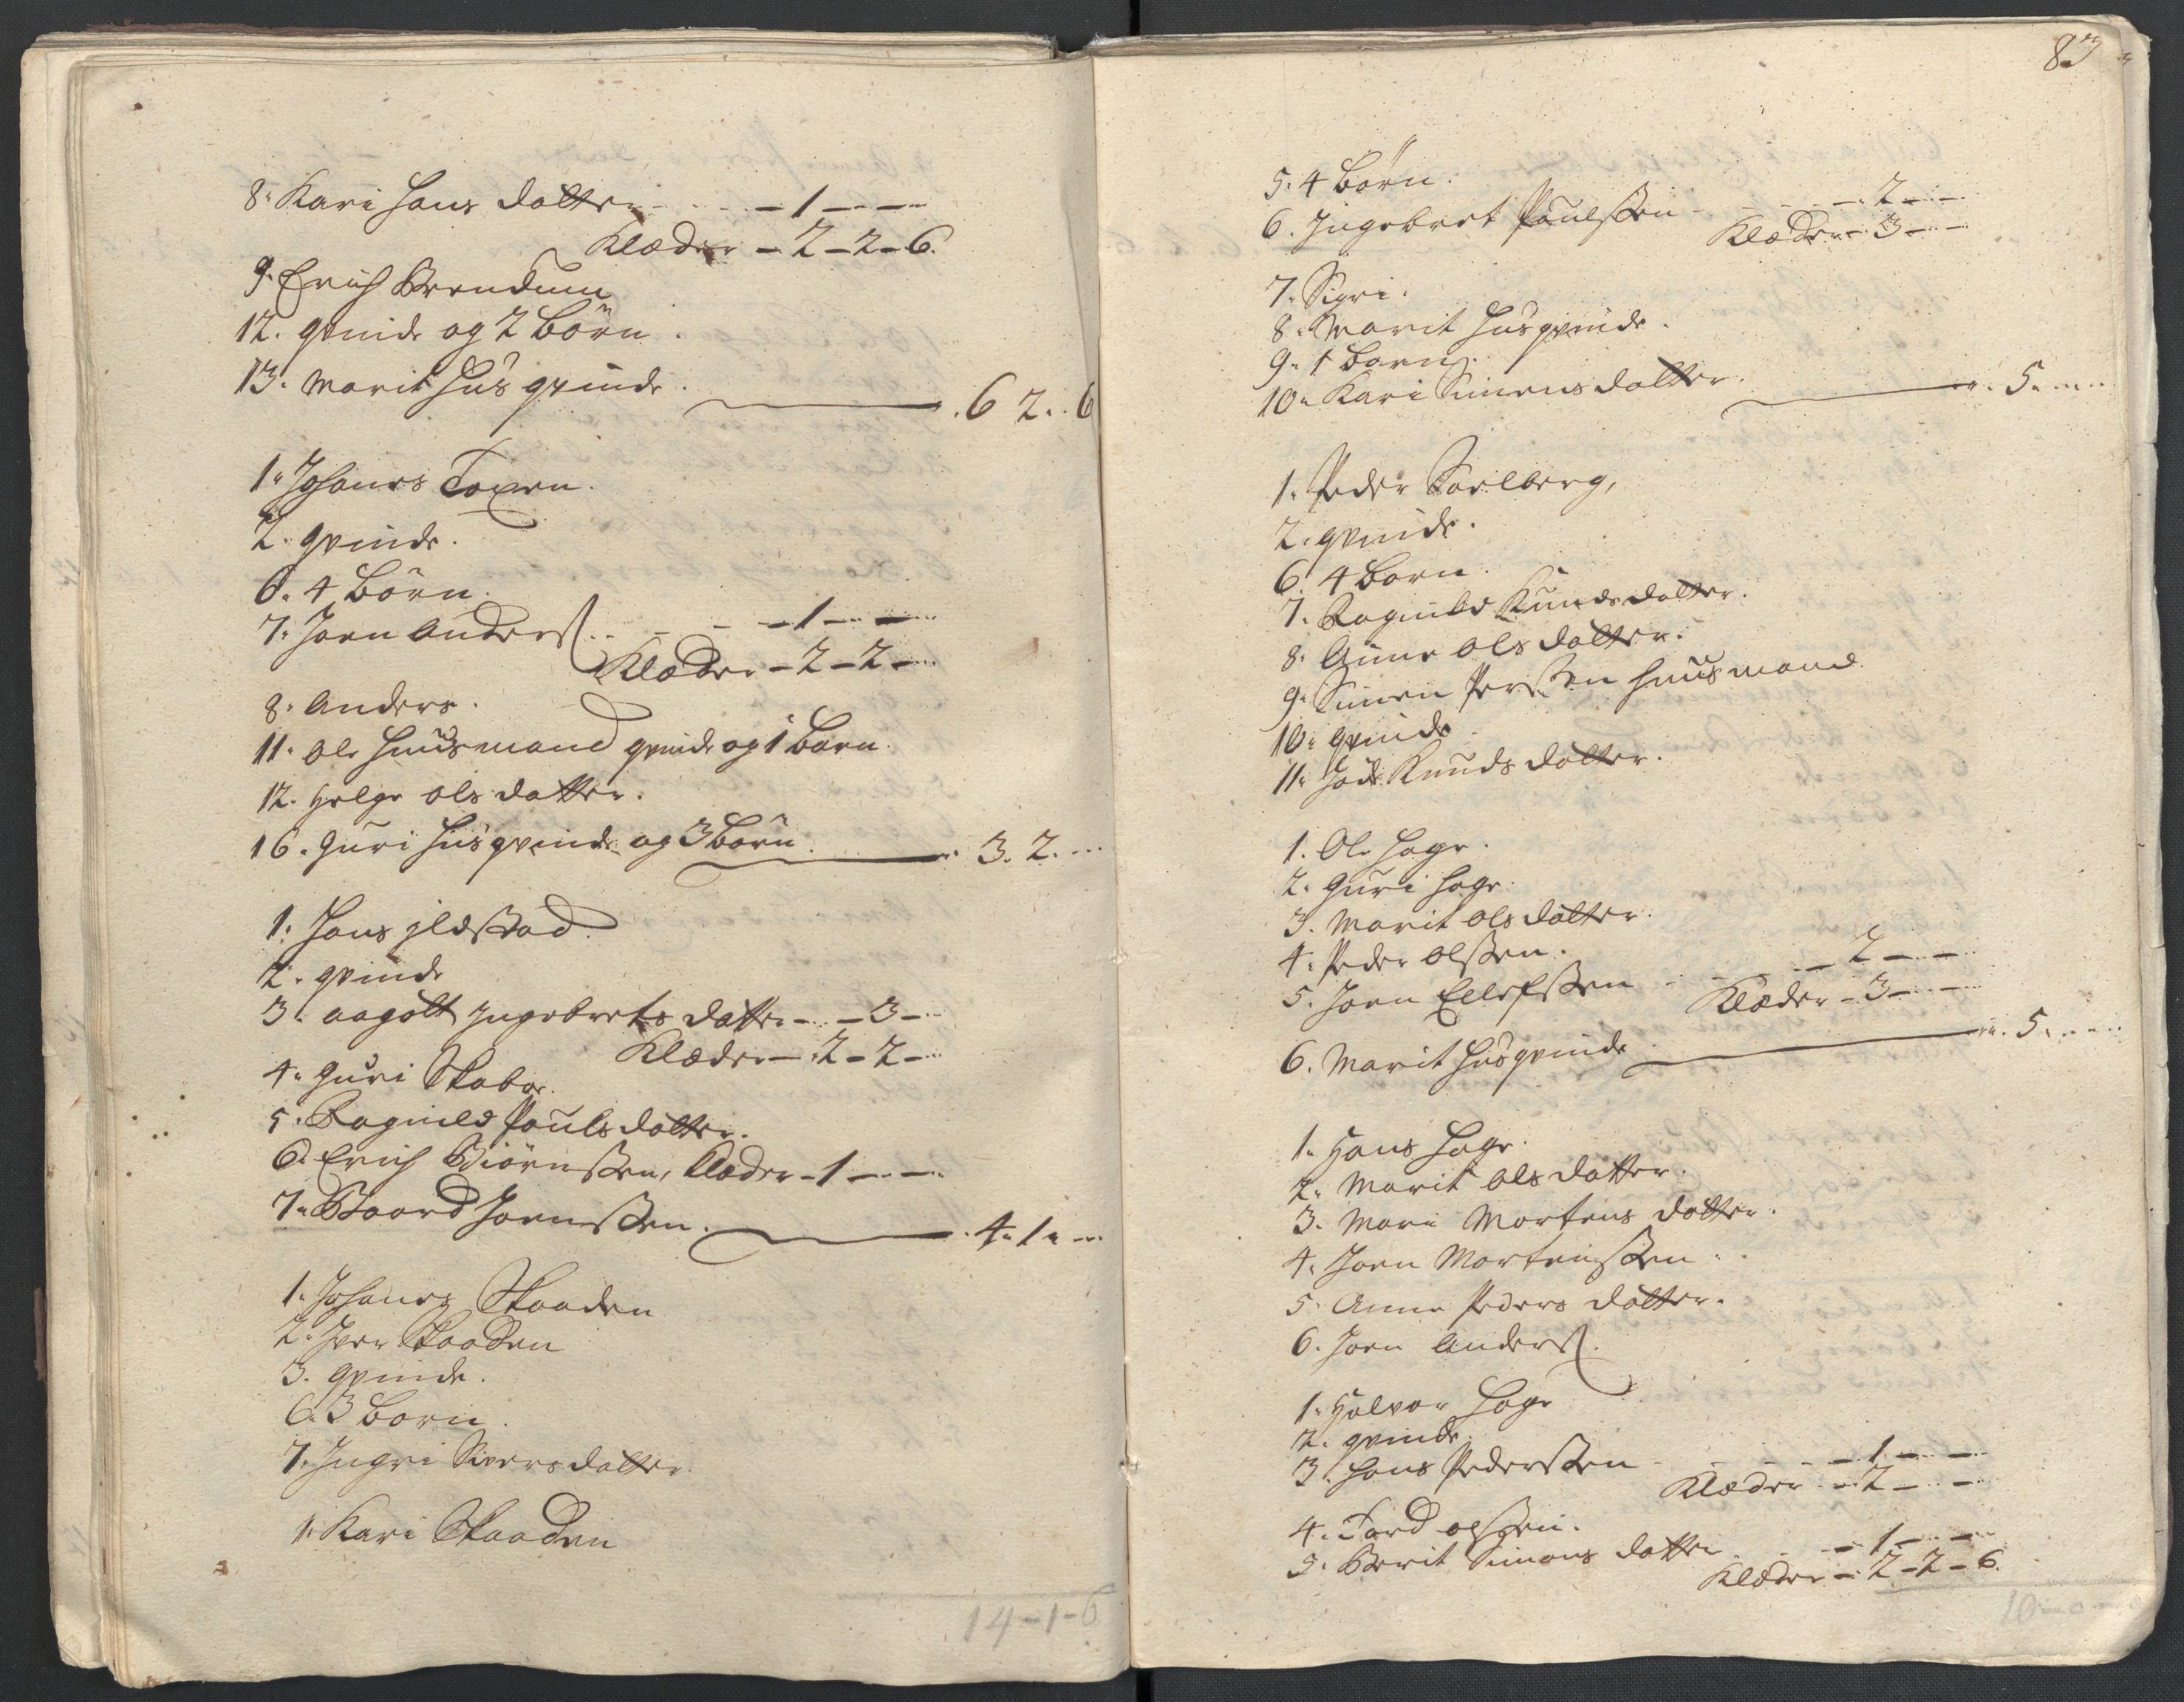 8. Kari Hans datter - - - 1 - -
Klæder - 2 - 2 - 6.
9. Erich Brendum
12. qvinde og 2 Börn.
13. Marit Hus qvinde. . 6 2. . 6
1. Johanes Toxen.
2. qvinde.
6. 4 Börn.
7. Joen Anderss. - - - 1 - -
Klæder - 2 - 2 -
8. Anders.
11. Ole Huusmand qvinde og 1 Barn.
12. Helge Ols datter.
16. Guri Hus qvinde og 3 Börn. . 3. 2. -
1. Hans
2. qvinde
3. aagott Ingebrets datter - - 3 -
Klæder - 2 - 2 -
4. Guri
5. Ragnild Pouls datter.
6. Erich Biörnssen, Klæder - 1 - -
7. Baard Joenssen. . 4. 1. -
1. Johanes Staaden
2. Iver Staaden
3. qvinde.
6. 3 Born.
7. Ingri Sivers datter
1. Kari Staaden
14-1-6
83
5. 4 Börn.
6. Ingebret Poulssen - - - 2 - -
Klæder - 3 - -
7. Sigri.
8. Marit Husqvinde.
9. 1 Barn.
10. Kari Simens datter. . 5. - -
1. Peder Sorlberg,
2. qvinde.
6. 4 Born.
7. Ragnild Knuds datter.
8. Anne Ols datter.
9. Simen Perssen Huusmand
10. qvinde
11. Knuds datter.
1. Ole Hage.
2. Guri Hage.
3. Marit Ols datter.
4. Peder Olssen.
5. Joen Ellefssen - - - 2 - -
Klæder - 3 - -
6. Marit Husqvinde . 5. - -
1. Hans Hage.
2. Marit Ols datter.
3. Mari Mortens datter.
4. Joen Mortenssen.
5. Anne Peders datter.
6. Joen Anderss.
1. Halvor Hage
2. qvinde.
3. Hans Pederssen - - - 1 - -
Klæder - 2 - -
4. Tord olssen.
5. Berit Simons datter - - 1 - -
Klæder - 2 - 2 - 6.
10 - 0 - 0